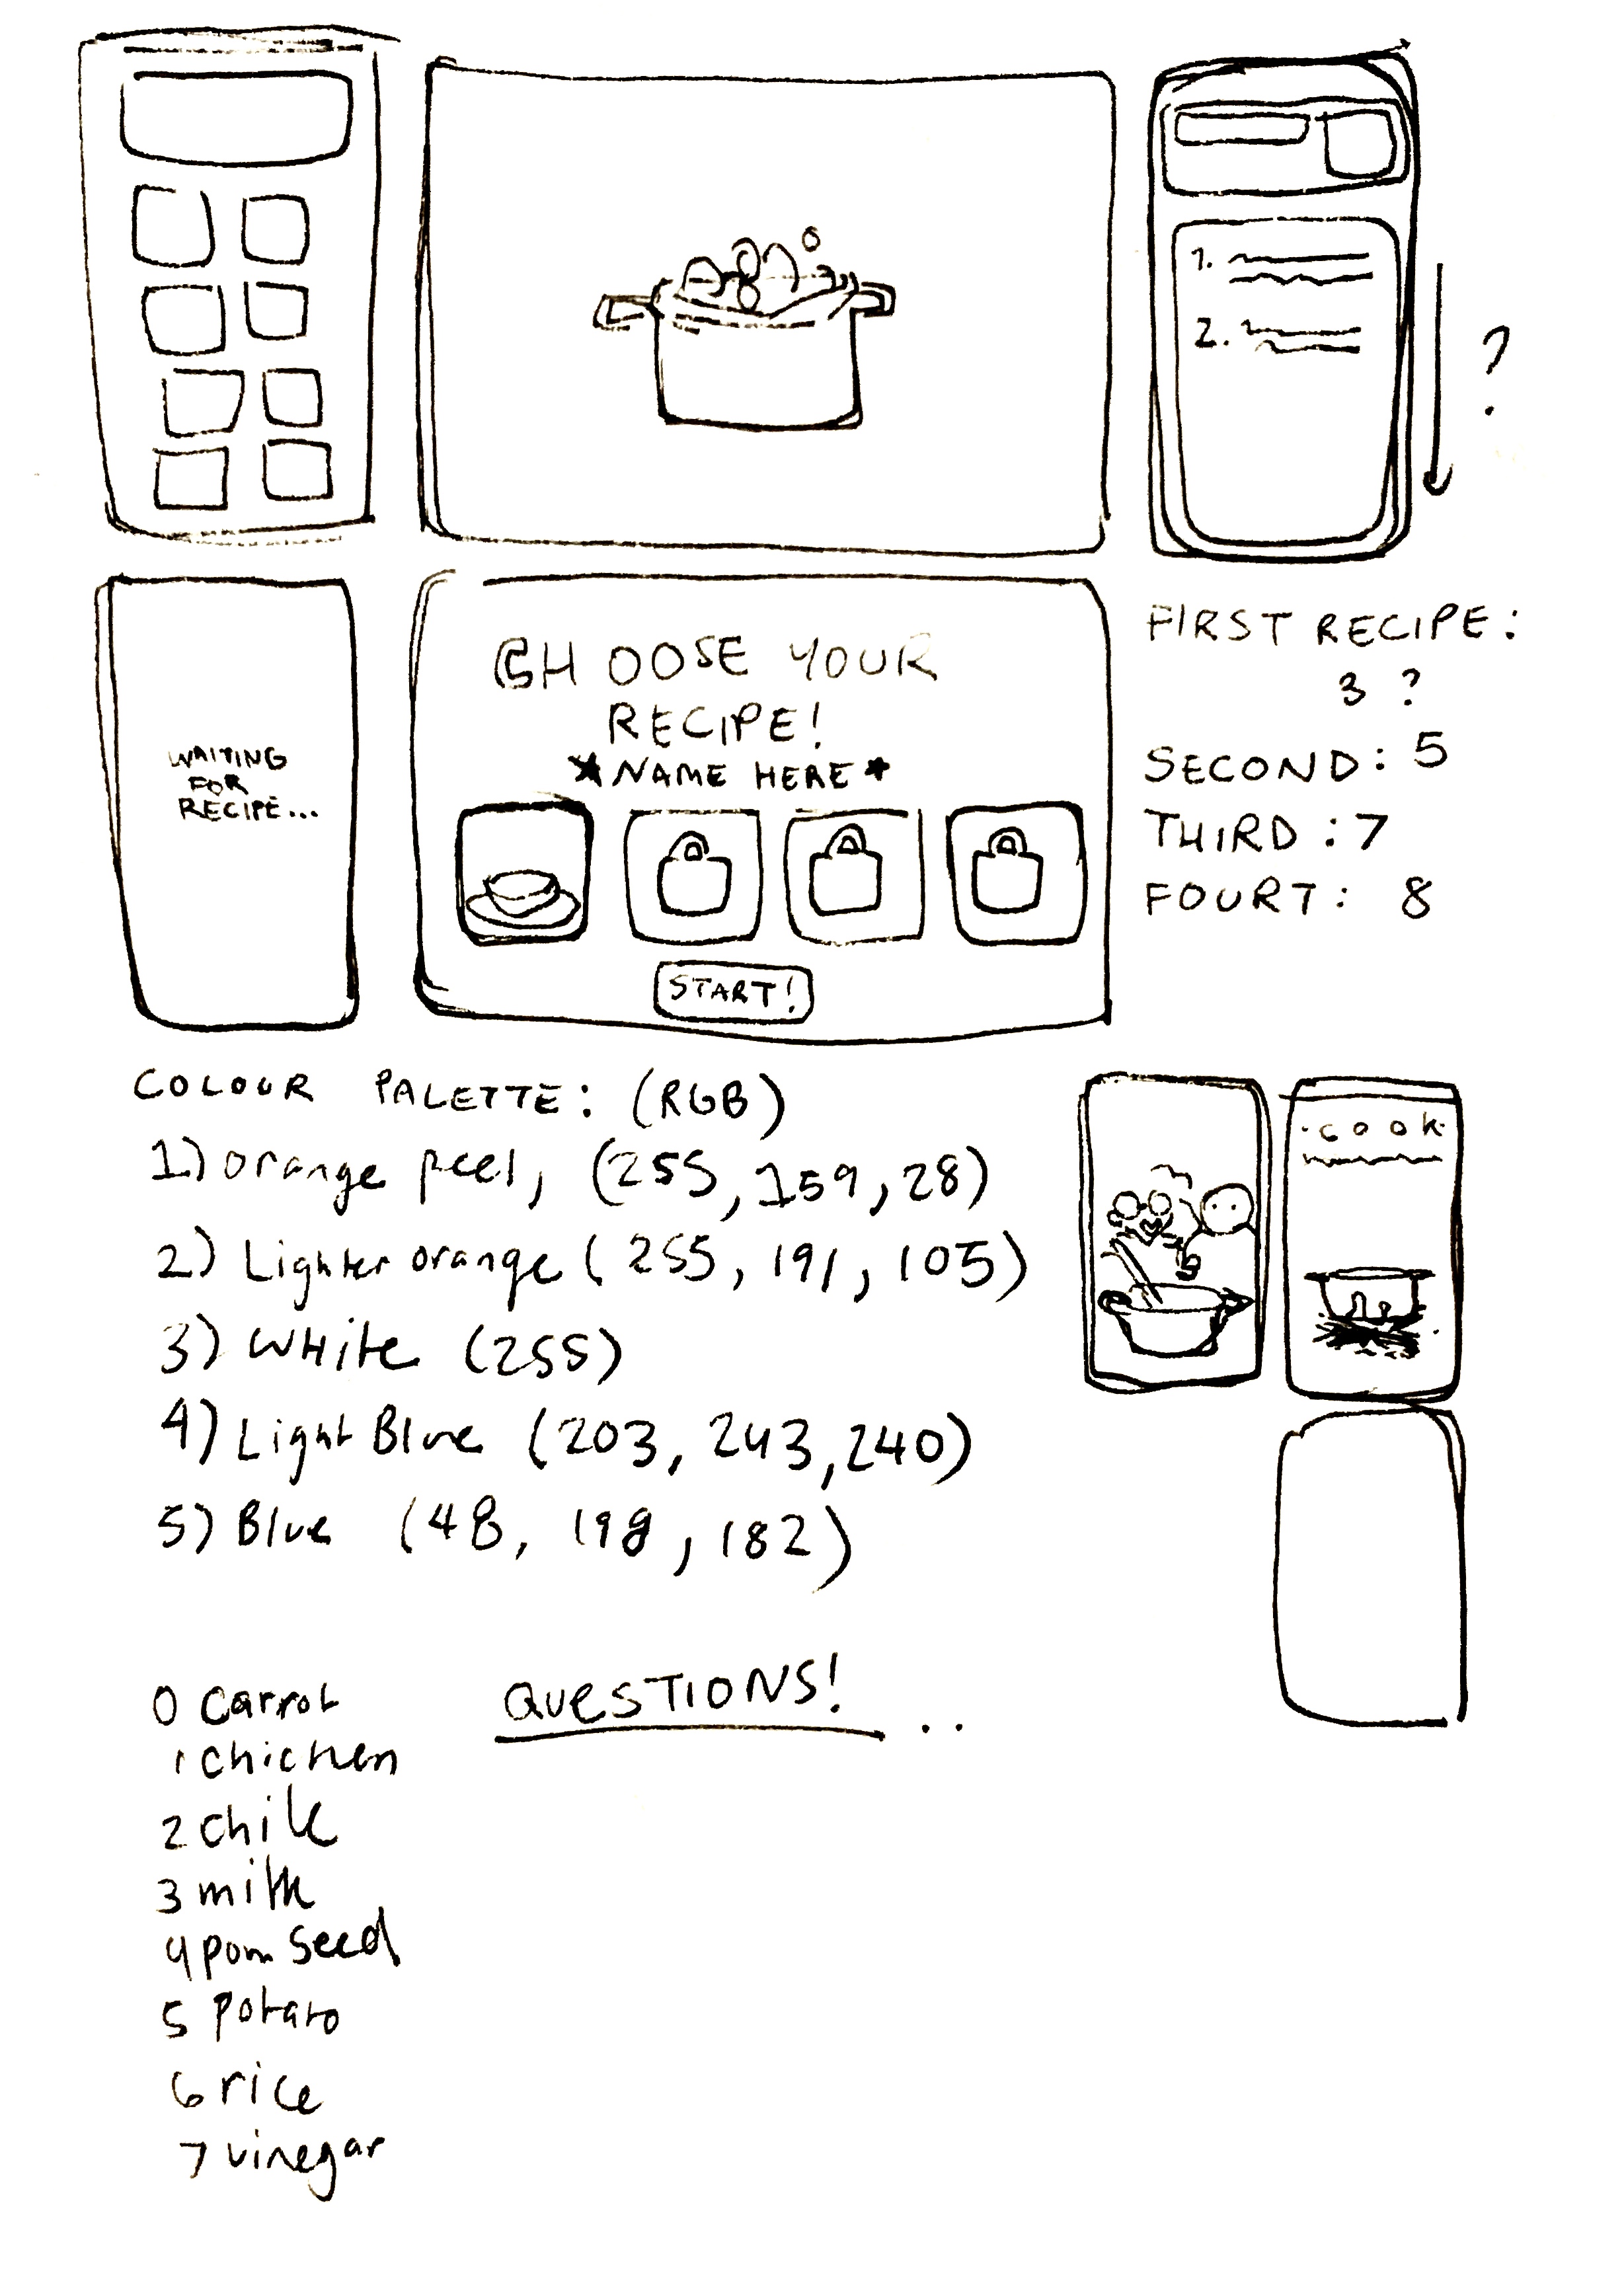 1.
2.
?
WAITING
FOR
RECIPE...
CHOOSE YOUR
RECIPE!
*NAME HERE*
START!
FIRST RECIPE:
3 ?
SECOND: 5
THIRD: 7
FOURT: 8
COLOUR PALETTE: (RGB)
1) orange peel, (255, 159, 28)
2) Lighter orange (255, 191, 105)
3) WHite (255)
4) Light Blue (203, 243, 240)
5) Blue (48, 198, 182)
·COOK·
0 carrot
1 chicken
2 chile
3 milk
4 pom seed
5 potato
6 rice
7 vinegar
QUESTIONS! ..